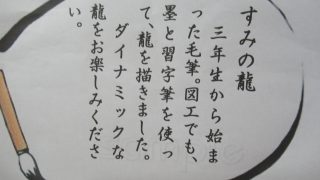 すみの龍
三年生から始ま
った毛筆。図工でも、
墨と習字筆を使っ
て、龍を描きました。
ダイナミックな
龍をお楽しみくださ
い。